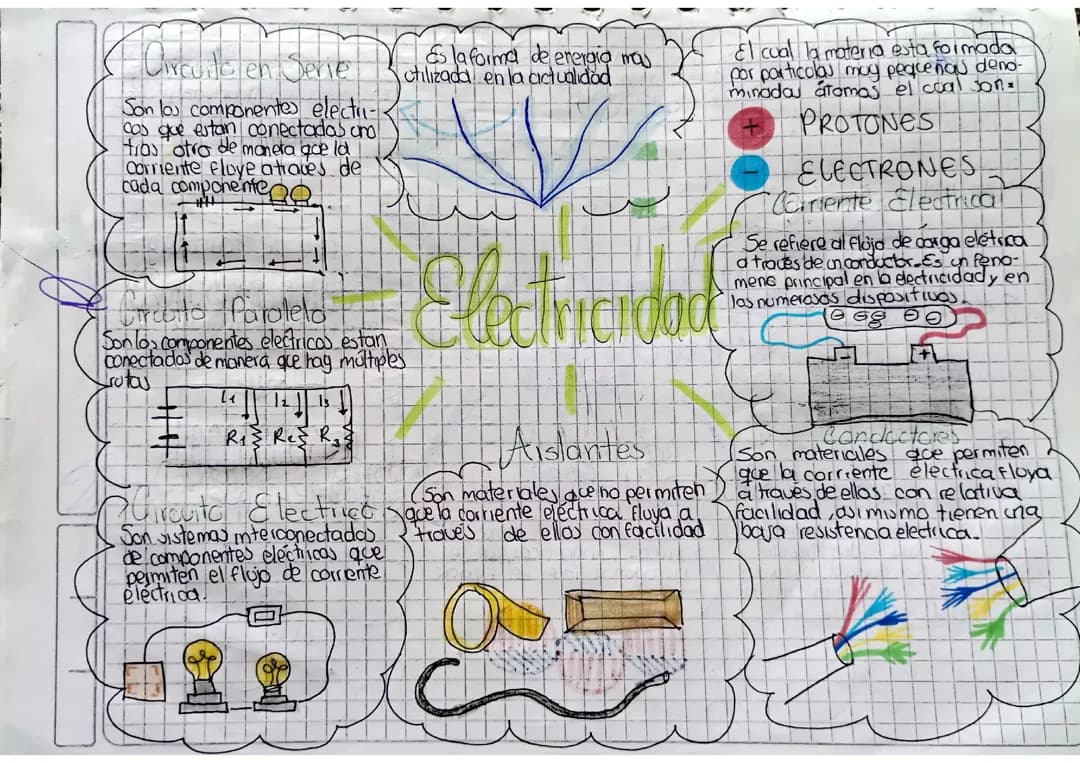 Circuito en Serie
Son los componentes electri-
cos que estan conectados uno
tras otro de manera que la
corriente fluye atraves de
cada componente
Es la forma de energia mas
utilizada en la actualidad
El cual la materia esta formada
por particolas muy pequeñas deno-
minadas átomas el cual son:
+ PROTONES
- ELECTRONES
Corriente Electrica
Se refiere al flujo de carga eletrica
a través de un conductor. Es un feno-
meno principal en la electricidad y en
los numerosos dispositivos.
- +
Electricidad
Circuito Paralelo
Son los componentes eléctricos estan
conectados de manera que hay multiples
rutas
I1 I2 I3
R1 R2 R3
Circuito Electrico
Son sistemas interconectados
de componentes eléctricas que
permiten el flujo de corriente
eléctrica.
Aislantes
Son materiales que no permiten
que la corriente eléctrica fluya a
través de ellos con facilidad
Conductores
Son materiales que permiten
que la corriente électrica fluya
a traves de ellos con relativa
facilidad, asimismo tienen una
baja resistencia electrica.